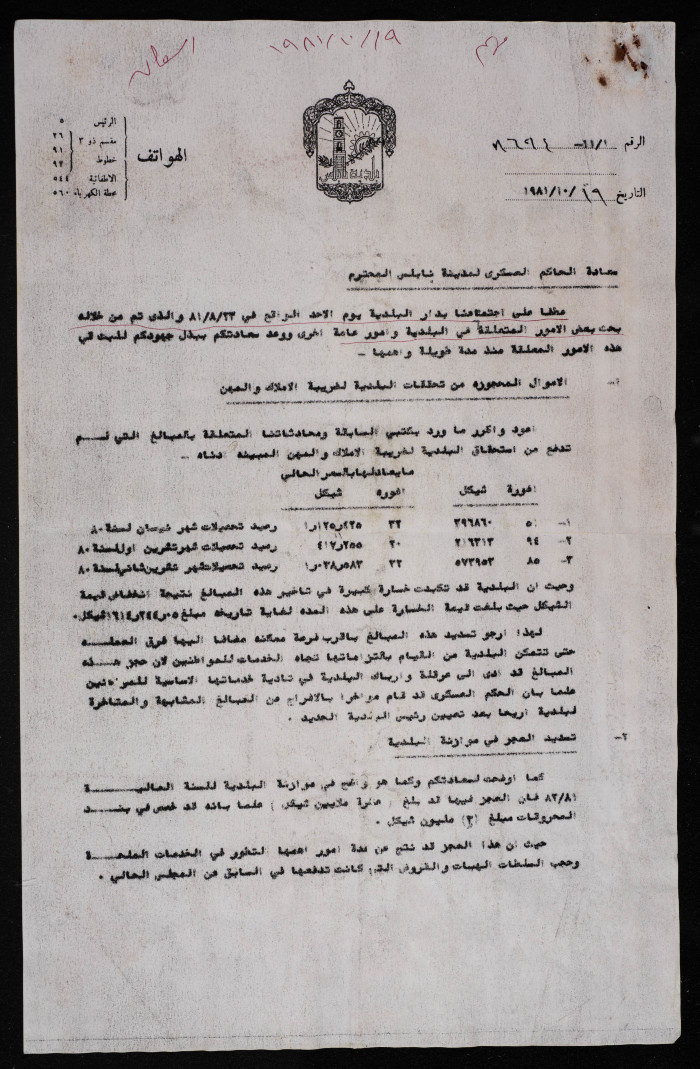 ١٩٨١/١٠/١٩
الرقم ١١/١
التاريخ ١٩٨١/١٠/١٩
بلدية نابلس
الهواتف
الرئيس ٥
مقسم ذو ٣ خطوط ٢٦ ٩١ ٩٣
الاطفائية ٥٤٤
محطة الكهرباء ٥٦٠
سعادة الحاكم العسكري لمدينة نابلس المحترم
عطفا على اجتماعنا بدار البلدية يوم الاحد الواقع في ٨١/٨/٢٣ والذى تم من خلاله
بحث بعض الامور المتعلقة في البلدية وامور عامة اخرى ووعد سعادتكم ببذل جهودكم للبت في
هذه الامور المعلقة منذ مدة طويلة واهمها -
١- الاموال المحجوزه من تحققات البلدية لضريبة الاملاك والمهن
اعود واكرر ما ورد بكتبي السابقة ومحادثاتنا المتعلقة بالمبالغ التي لم
تدفع من استحقاق البلدية لضريبة الاملاك والمهن المبينه ادناه -
مايعادلها بالسعر الحالي
اغورة شيكل اغوره شيكل
١- ٥١ ٣٩٦٨٦٠ ٣٢ ١,١٢٥,٤٢٥ رصيد تحصيلات شهر نيسان لسنة ٨٠
٢- ٩٤ ٢١٦٣١٣ ٢٠ ٤١٢,٢٥٥ رصيد تحصيلات شهر تشرين اول لسنة ٨٠
٣- ٨٥ ٥٧٣٩٥٣ ٣٢ ١,٠٣٨,٥٨٣ رصيد تحصيلات شهر تشرين ثاني لسنة ٨٠
وحيث ان البلدية قد تكبدت خسارة كبيرة في تاخير هذه المبالغ نتيجة انخفاض قيمة
الشيكل حيث بلغت قيمة الخسارة على هذه المده لغاية تاريخه مبلغ شيكل.
لهذا ارجو تسديد هذه المبالغ باقرب فرصة ممكنه مضافا اليها فرق العمله
حتى تتمكن البلدية من القيام بالتزاماتها تجاه الخدمات للمواطنين لان حجز هذه
المبالغ قد ادى الى عرقلة وارباك البلدية في تادية خدماتها الاساسية للمواطنين
علما بان الحكم العسكرى قد قام مواخرا بالافراج عن المبالغ المشابهة والمتاخرة
لبلدية اريحا بعد تعيين رئيس البلدية الجديد .
٢- تسديد العجز في موازنة البلدية
كما اوضحت لسعادتكم وكما هو واضح في موازنة البلدية للسنة الحالية
٨٢/٨١ فان العجز فيها قد بلغ ( عشرة ملايين شيكل ) علما بانه قد خصص في بند
المحروقات مبلغ (٣) مليون شيكل .
حيث ان هذا العجز قد نتج عن عدة امور اهمها التطور في الخدمات الملحة
وحجب السلطات الهبات والقروض التي كانت تدفعها في السابق عن المجلس الحالي .